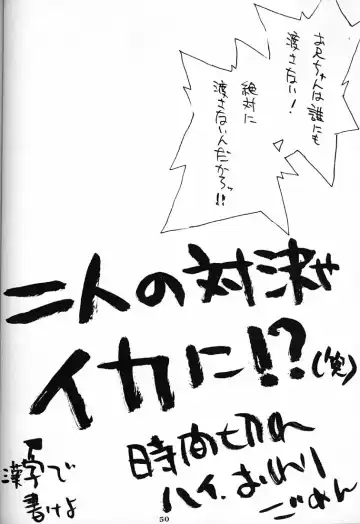 お兄ちゃんは誰にも
渡さない!
絶対に
渡さないんだからッ!!
二人の対決や
イカに!?(笑)
時間切れ
ハイ、おわり
ごめん
漢字で
書けよ
50